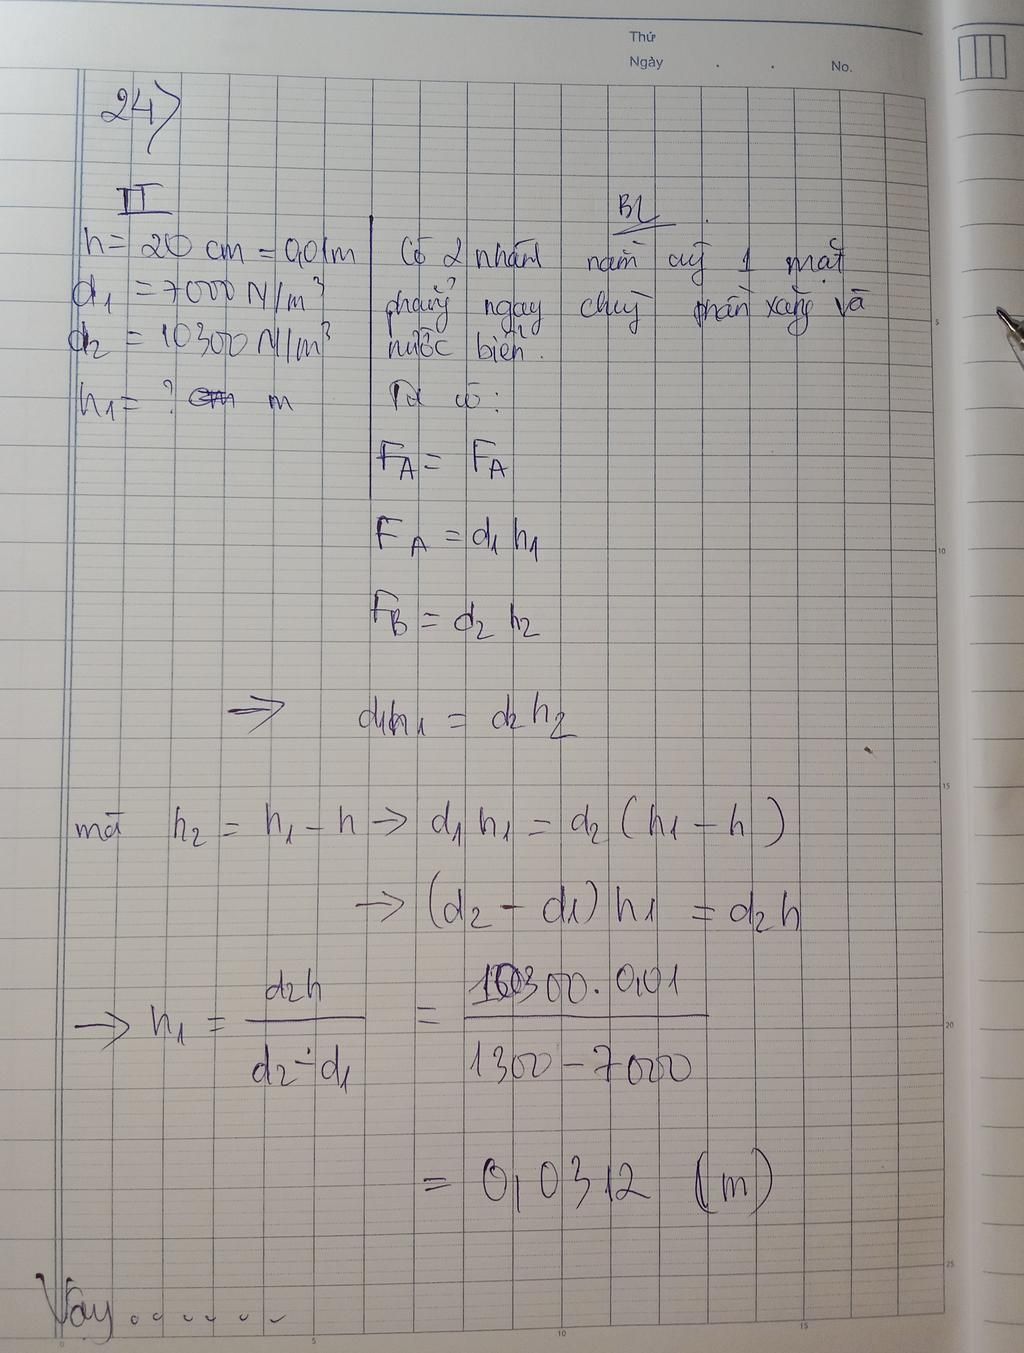 Thứ
Ngày . . No.
24)
TT
BL
h = 20 cm = 0,01m
d1 = 7000 N/m³
d2 = 10300 N/m³
h1 = ? cm m
Có 2 nhánh nằm cùg 1 mặt
phẳng ngay chỗ phân xăng và
nước biển.
Ta có:
FA = FA
FA = d1 h1
FB = d2 h2
→ d1h1 = d2 h2
mà h2 = h1 - h → d1 h1 = d2 (h1 - h)
→ (d2 - d1) h1 = d2 h
→ h1 = d2h / d2 - d1 = 10300. 0,01 / 1300 - 7000
= 0,0312 (m)
Vậy . . . . . .
5
10
15
20
25
0 5 10 15